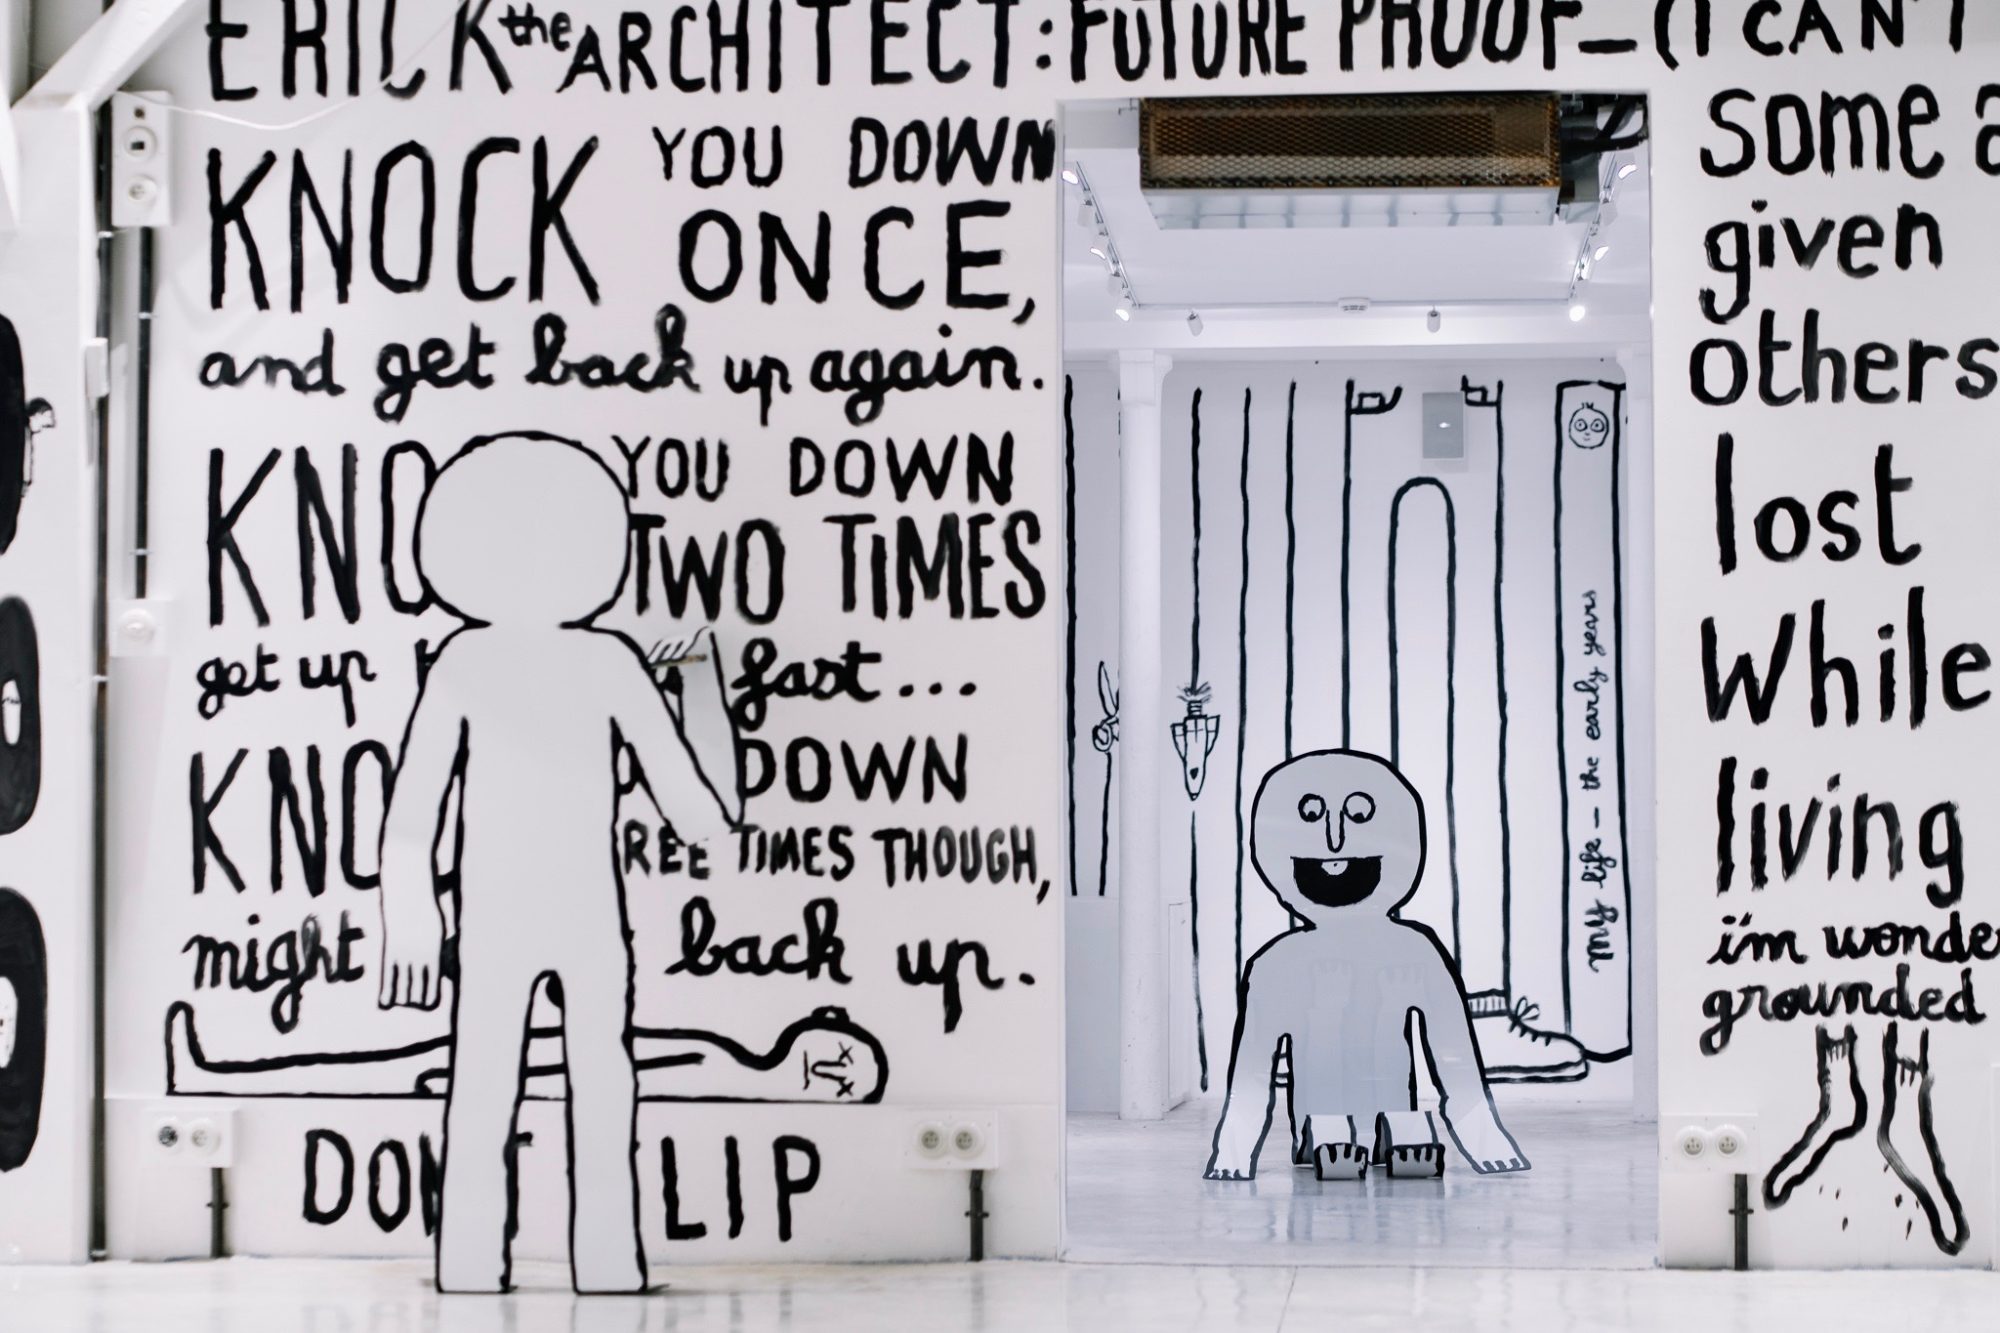 ERICK the ARCHITECT : FUTURE PROOF_ (I CAN'T
KNOCK YOU DOWN
ONCE,
and get back up again.
KNO YOU DOWN
TWO TIMES
get up fast...
KNO DOWN
REE TIMES THOUGH,
might back up.
DON'T LIP
my life - the early years
some a
given
others
lost
While
living
i'm wonde
grounded